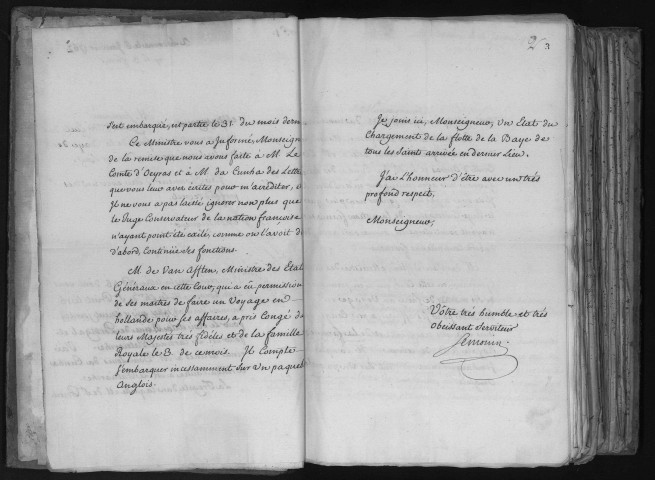 S'est embarqué, et partie le 31. du mois dern
Ce Ministre vous a Informé, Monseign
de la remise que nous avons faite à M. Le
Comte d'Oeyras et à M. da Cunha des Lettre
que vous leur avez écrites pour m'acréditer,
Il ne vous a pas laissé ignorer non plus que
le Juge Conservateur de la nation françoise
n'ayant point été exilé, comme on l'avoit d
d'abord, continüe ses fonctions.
M. de Van Afften, Ministre des Etat
Généraux en cette Cour, qui a eû permission
de ses maitres de faire un Voyage en
hollande pour ses affaires, a pris Congé de
leurs Majestés très fidéles et de la famille
Royale le 3. de ce mois. Il Compte
s'embarquer incessamment sur un paqueb
Anglois.
2 3
Je joins ici, Monseigneur, un Etat du
Chargement de la flotte de la Baye de
tous les Saints arrivée en dernier Lieu.
J'ai L'honneur d'être avec un trés
profond respect,
Monseigneur,
Vôtre trés humble et trés
obeissant serviteur